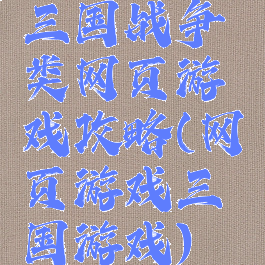 三国战争
类网页游
戏攻略(网
页游戏三
国游戏)